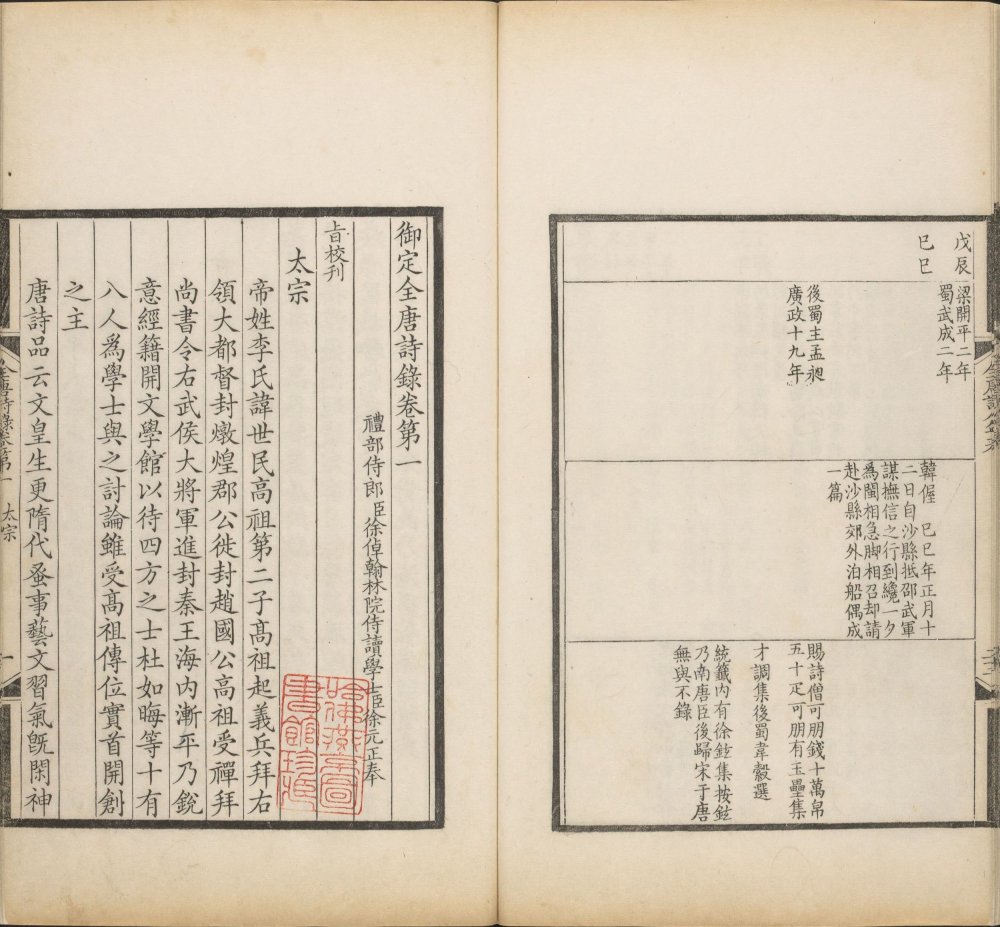 戊辰
梁開平二年
蜀武成二年
己巳
後蜀主孟昶
廣政十九年
韓偓 己巳年正月十
二日自沙縣抵邵武軍
謀撫信之行到纔一夕
為閩相急脚相召却請
赴沙縣郊外泊船偶成
一篇
賜詩僧可朋錢十萬帛
五十疋可朋有玉壘集
才調集後蜀韋縠選
統籤内有徐鉉集按鉉
乃南唐臣後歸宋于唐
無與不錄
御定全唐詩錄卷第一
禮部侍郎臣徐倬翰林院侍讀學士臣徐元正奉
旨校刊
太宗
帝姓李氏諱世民高祖第二子高祖起義兵拜右
領大都督封燉煌郡公徙封趙國公高祖受禪拜
尚書令右武侯大將軍進封秦王海内漸平乃銳
意經籍開文學館以待四方之士杜如晦等十有
八人爲學士與之討論雖受高祖傳位實首開創
之主
唐詩品云文皇生更隋代蚤事藝文習氣旣閑神
全唐詩錄卷第一 太宗 一
哈佛燕京圖
書館珍藏